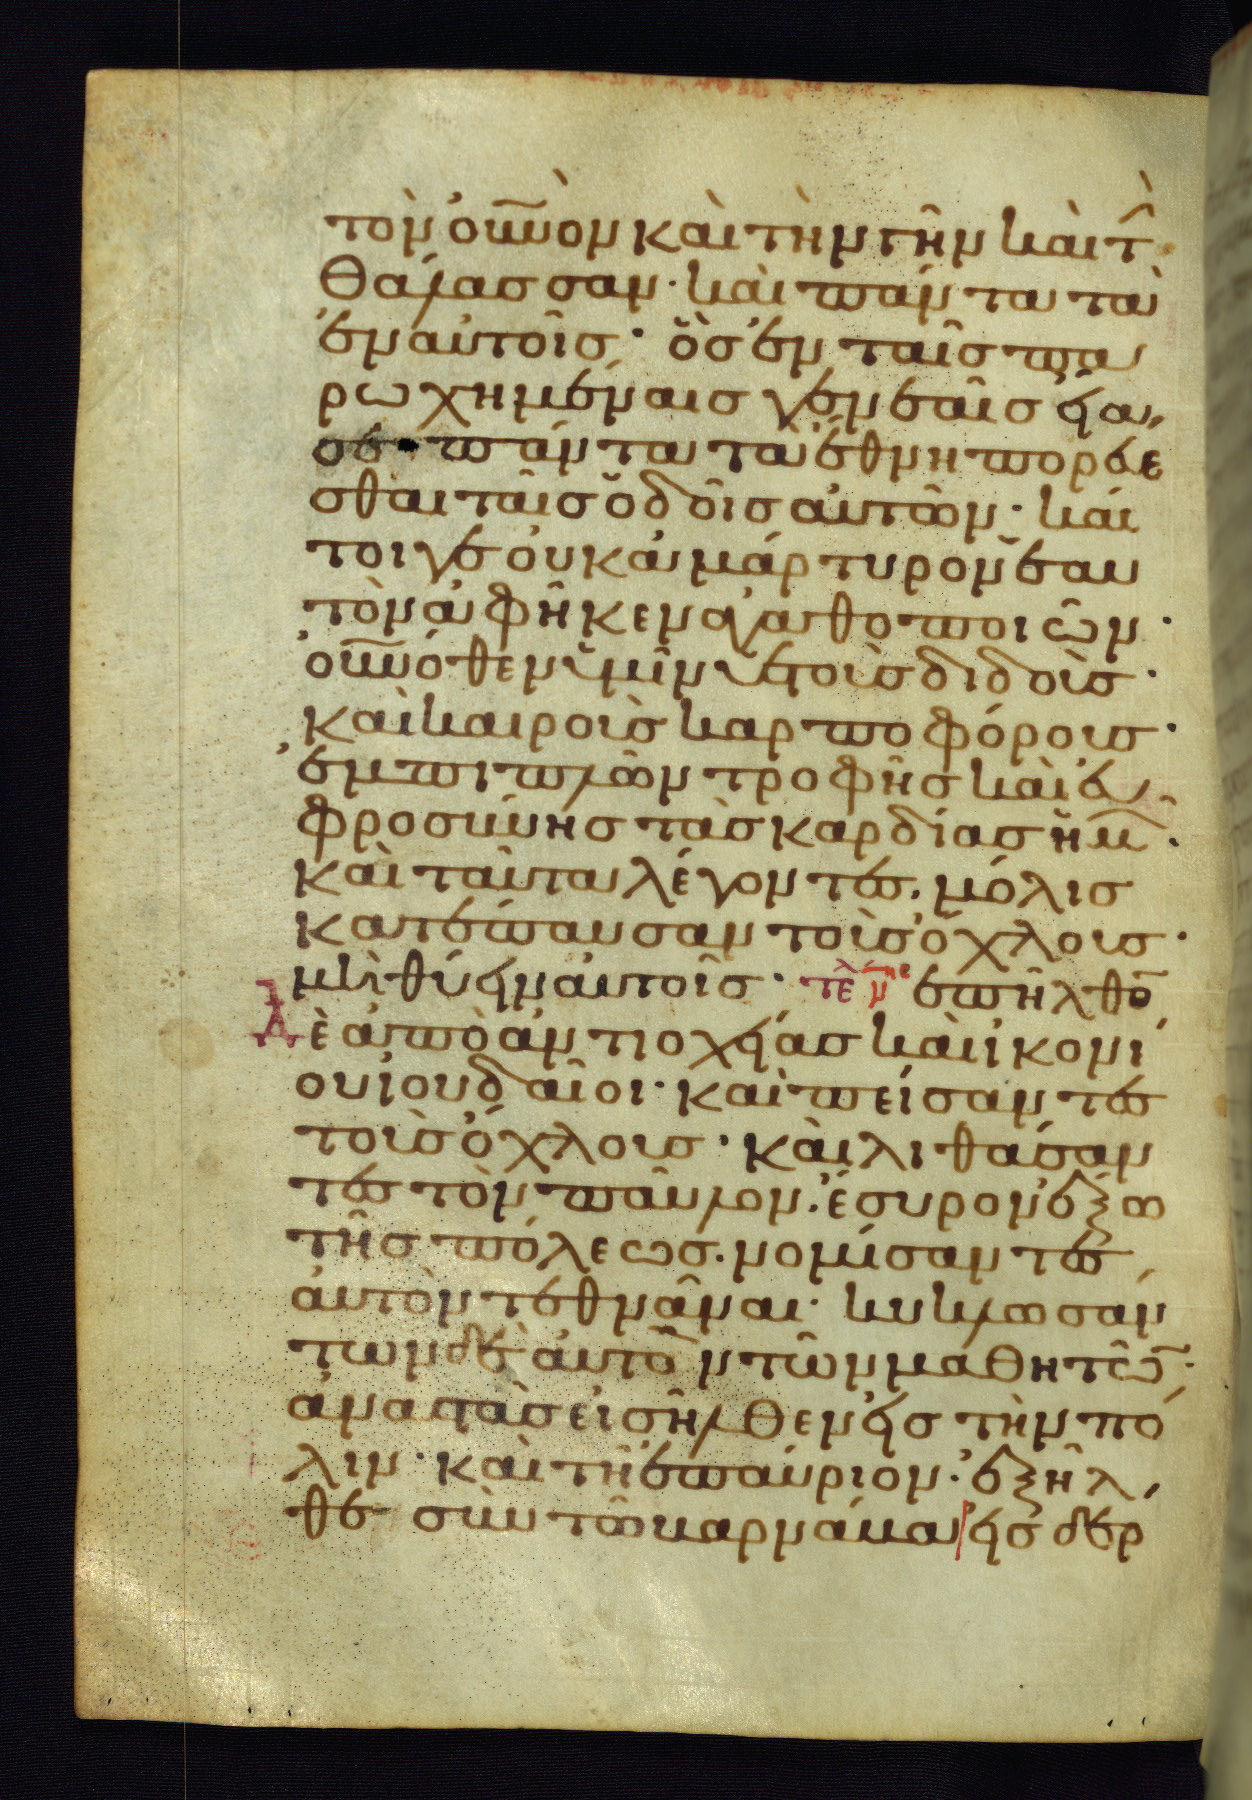 τὸν οὐ̅νὸν καὶ τὴν γῆν καὶ τ̂
θάλασσαν· καὶ πάντα τὰ
ἐν αὐτοῖς· ὃς ἐν ταῖς πα
ρωχημέναις γενεαῖς εἴα
σε πάντα τὰ ἔθνη πορεύε
σθαι ταῖς ὁδοῖς αὐτῶν· καί
τοιγε οὐκ ἀμάρτυρον ἑαυ
τὸν ἀφῆκεν ἀγαθοποιῶν·
οὐ̅νόθεν ὑμῖν ὑετοὺς διδοὺς·
καὶ καιροὺς καρποφόρους·
ἐμπιπλῶν τροφῆς καὶ εὐ
φροσύνης τὰς καρδίας ἡμ̂·
καὶ ταῦτα λέγοντες, μόλις
κατέπαυσαν τοὺς ὄχλους·
μὴ θύειν αὐτοῖς· τὲλ ἐπῆλθο̅
Δὲ ἀπὸ ἀντιοχείας καὶ ἰκονί
ου ἰουδαῖοι· καὶ πείσαντες
τοὺς ὄχλους· καὶ λιθάσαν
τες τὸν παῦλον, ἔσυρον ἔξω
τῆς πόλεως. νομίσαντες
αὐτὸν τεθνᾶναι· κυκλωσάν
των δὲ αὐτὸν τῶν μαθητῶ̅·
ἀναστὰς εἰσῆλθεν εἰς τὴν πό
λιν· καὶ τῆ ἐπαύριον· ἐξῆλ
θε σὺν τῶ βαρνάβα εἰς δέρ